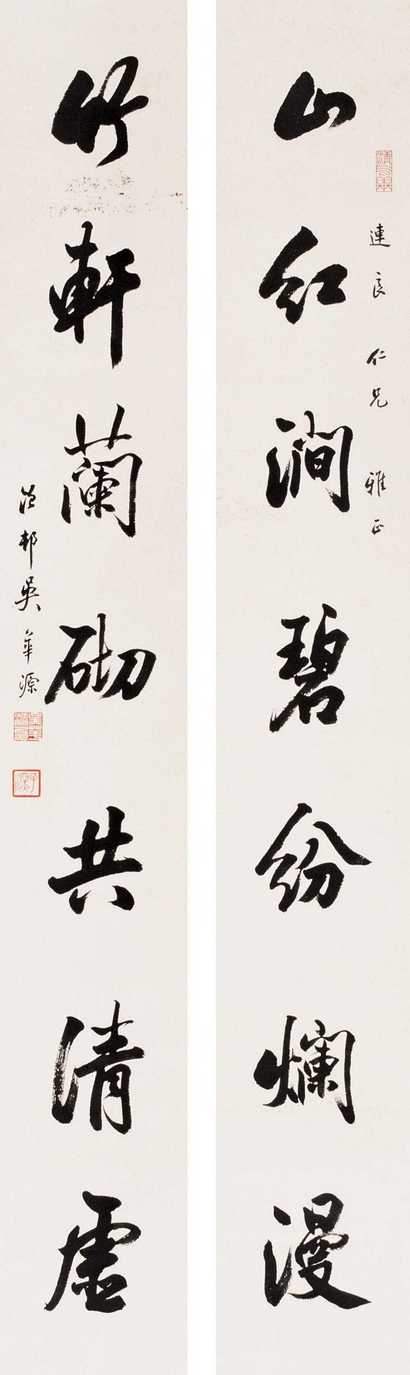 山红澗碧紛爛漫
連良仁兄 雅正
竹軒蘭砌共清虛
邨吳華源